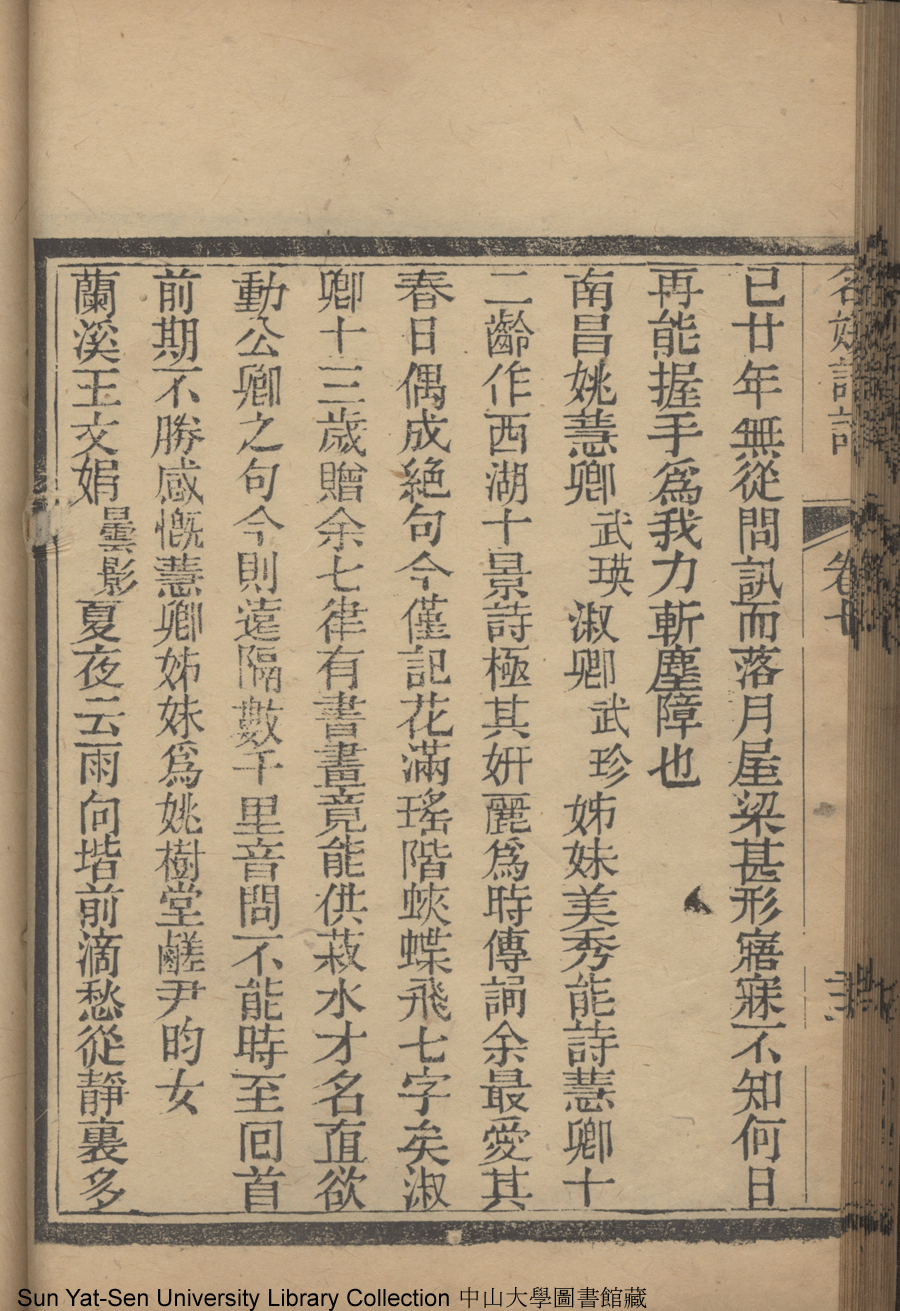 名媛詩話 卷十
已廿年無從問訊而落月屋梁甚形寤寐不知何日
再能握手爲我力斬塵障也
南昌姚慧卿武瑛淑卿武珍姊妹美秀能詩慧卿十
二齡作西湖十景詩極其姸麗爲時傳誦余最愛其
春日偶成絶句今僅記花滿瑤階蛺蝶飛七字矣淑
卿十三歲贈余七律有書畫竟能供菽水才名直欲
動公卿之句今則遠隔數千里音問不能時至回首
前期不勝感慨慧卿姊妹爲姚樹堂鹺尹昀女
蘭溪王文娟曇影夏夜云雨向堦前滴愁從靜裏多
Sun Yat-Sen University Library Collection 中山大學圖書館藏